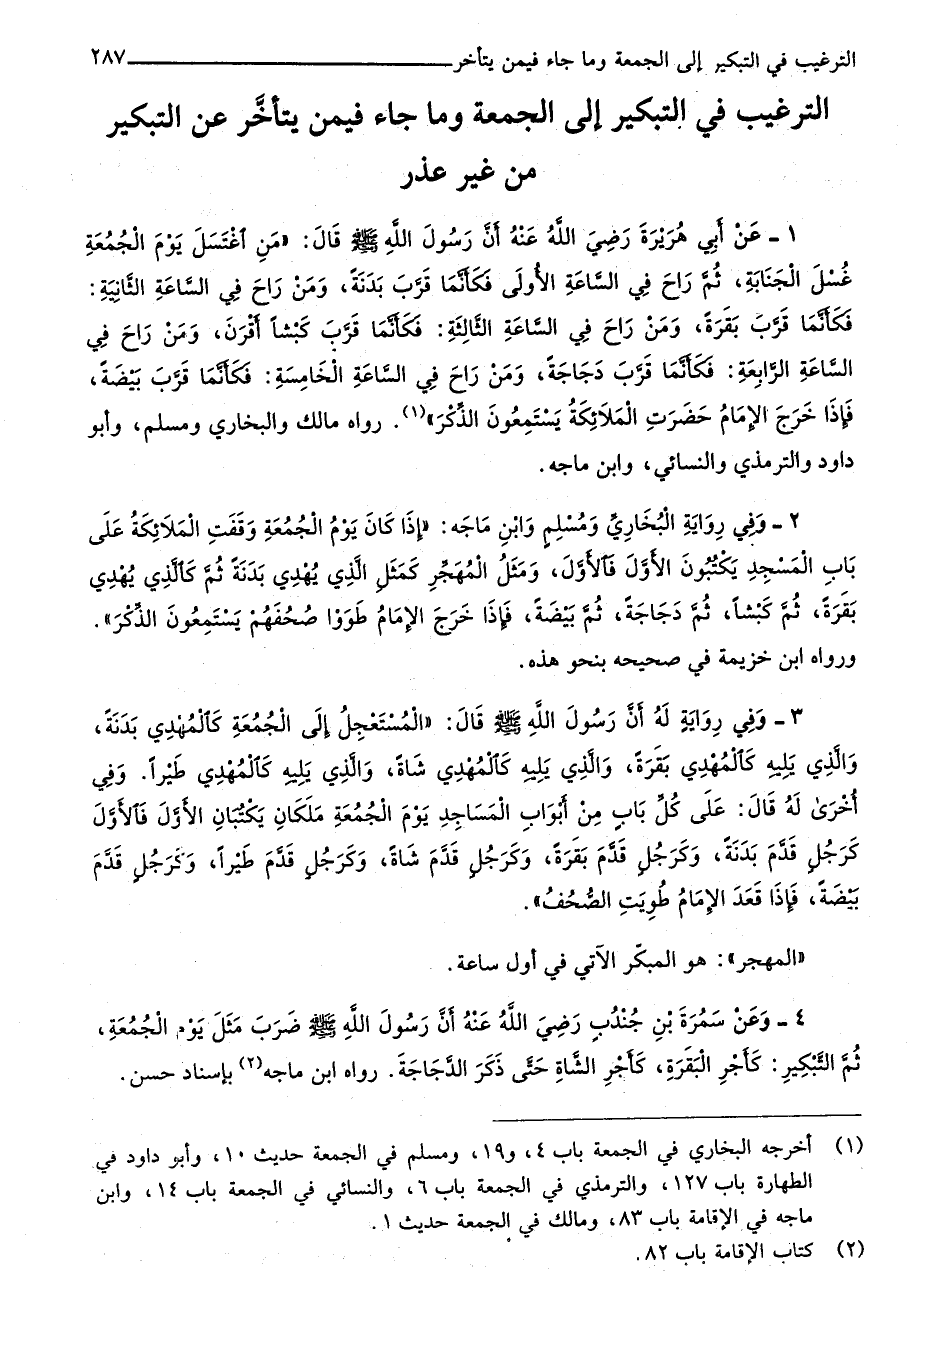 الترغيب في التبكير إلى الجمعة وما جاء فيمن يتأخر ٢٨٧
الترغيب في التبكير إلى الجمعة وما جاء فيمن يتأخَّر عن التبكير
من غير عذر
١ ـ عَنْ أَبِي هُرَيْرَةَ رَضِيَ اللَّهُ عَنْهُ أَنَّ رَسُولَ اللَّهِ ﷺ قَالَ: «مَنِ ٱغْتَسَلَ يَوْمَ الْجُمُعَةِ
غُسْلَ الْجَنَابَةِ، ثُمَّ رَاحَ فِي السَّاعَةِ الْأُولَى فَكَأَنَّمَا قَرَّبَ بَدَنَةً، وَمَنْ رَاحَ فِي السَّاعَةِ الثَّانِيَةِ:
فَكَأَنَّمَا قَرَّبَ بَقَرَةً، وَمَنْ رَاحَ فِي السَّاعَةِ الثَّالِثَةِ: فَكَأَنَّمَا قَرَّبَ كَبْشاً أَقْرَنَ، وَمَنْ رَاحَ فِي
السَّاعَةِ الرَّابِعَةِ: فَكَأَنَّمَا قَرَّبَ دَجَاجَةً، وَمَنْ رَاحَ فِي السَّاعَةِ الْخَامِسَةِ: فَكَأَنَّمَا قَرَّبَ بَيْضَةً،
فَإِذَا خَرَجَ الإِمَامُ حَضَرَتِ الْمَلَائِكَةُ يَسْتَمِعُونَ الذِّكْرَ»(١). رواه مالك والبخاري ومسلم، وأبو
داود والترمذي والنسائي، وابن ماجه.
٢ ـ وَفِي رِوَايَةِ الْبُخَارِيِّ وَمُسْلِمٍ وَابْنِ مَاجَه: «إِذَا كَانَ يَوْمُ الْجُمُعَةِ وَقَفَتِ الْمَلَائِكَةُ عَلَى
بَابِ الْمَسْجِدِ يَكْتُبُونَ الأَوَّلَ فَٱلأَوَّلَ، وَمَثَلُ الْمُهَجِّرِ كَمَثَلِ الَّذِي يُهْدِي بَدَنَةً ثُمَّ كَٱلَّذِي يُهْدِي
بَقَرَةً، ثُمَّ كَبْشاً، ثُمَّ دَجَاجَةً، ثُمَّ بَيْضَةً، فَإِذَا خَرَجَ الإِمَامُ طَوَوْا صُحُفَهُمْ يَسْتَمِعُونَ الذِّكْرَ».
ورواه ابن خزيمة في صحيحه بنحو هذه.
٣ ـ وَفِي رِوَايَةٍ لَهُ أَنَّ رَسُولَ اللَّهِ ﷺ قَالَ: «الْمُسْتَعْجِلُ إِلَى الْجُمُعَةِ كَٱلْمُهْدِي بَدَنَةً،
وَالَّذِي يَلِيهِ كَٱلْمُهْدِي بَقَرَةً، وَالَّذِي يَلِيهِ كَٱلْمُهْدِي شَاةً، وَالَّذِي يَلِيهِ كَٱلْمُهْدِي طَيْراً. وَفِي
أُخْرَىٰ لَهُ قَالَ: عَلَى كُلِّ بَابٍ مِنْ أَبْوَابِ الْمَسَاجِدِ يَوْمَ الْجُمُعَةِ مَلَكَانِ يَكْتُبَانِ الأَوَّلَ فَٱلأَوَّلَ
كَرَجُلٍ قَدَّمَ بَدَنَةً، وَكَرَجُلٍ قَدَّمَ بَقَرَةً، وَكَرَجُلٍ قَدَّمَ شَاةً، وَكَرَجُلٍ قَدَّمَ طَيْراً، وَكَرَجُلٍ قَدَّمَ
بَيْضَةً، فَإِذَا قَعَدَ الإِمَامُ طُوِيَتِ الصُّحُفُ».
«المهجر»: هو المبكّر الآتي في أول ساعة.
٤ ـ وَعَنْ سَمُرَةَ بْنِ جُنْدُبٍ رَضِيَ اللَّهُ عَنْهُ أَنَّ رَسُولَ اللَّهِ ﷺ ضَرَبَ مَثَلَ يَوْمِ الْجُمُعَةِ،
ثُمَّ التَّبْكِيرِ: كَأَجْرِ الْبَقَرَةِ، كَأَجْرِ الشَّاةِ حَتَّى ذَكَرَ الدَّجَاجَةَ. رواه ابن ماجه(٢) بإسناد حسن.
(١) أخرجه البخاري في الجمعة باب ٤، و١٩، ومسلم في الجمعة حديث ١٠، وأبو داود في
الطهارة باب ١٢٧، والترمذي في الجمعة باب ٦، والنسائي في الجمعة باب ١٤، وابن
ماجه في الإقامة باب ٨٣، ومالك في الجمعة حديث ١.
(٢) كتاب الإقامة باب ٨٢.